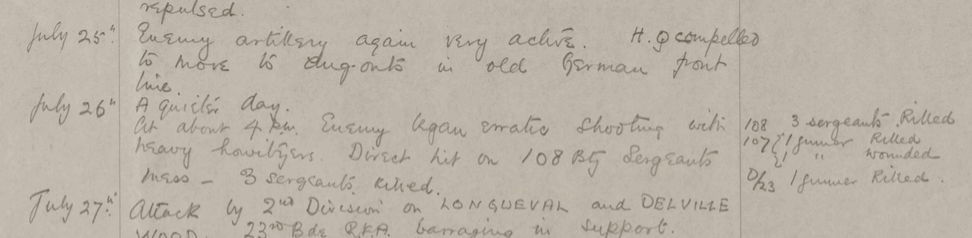 repulsed.
July 25th. Enemy artillery again very active. H.Q compelled
to move to dug-outs in old German front
line.
July 26th A quieter day.
At about 4 p.m. Enemy began erratic shooting with
heavy howitzers. Direct hit on 108 Bty Sergeants
mess – 3 sergeants killed.
108 3 sergeants Killed
107 { 1 gunner Killed
{ 1 " wounded
D/23 1 gunner Killed.
July 27th. Attack by 2nd Division on LONGUEVAL and DELVILLE
WOOD. 23rd Bde R.F.A. barraging in support.